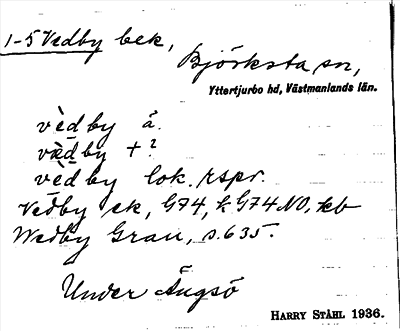 1-5 Vedby bek,
Björksta sn,
Yttertjurbo hd, Västmanlands län.
vèdby å.
vædby + ?
vedby lok. rspr.
Vedby ek, G74, k G74 NO, kb
Wedby Grau, s. 635.
Under Ängsö
HARRY STÅHL 1936.